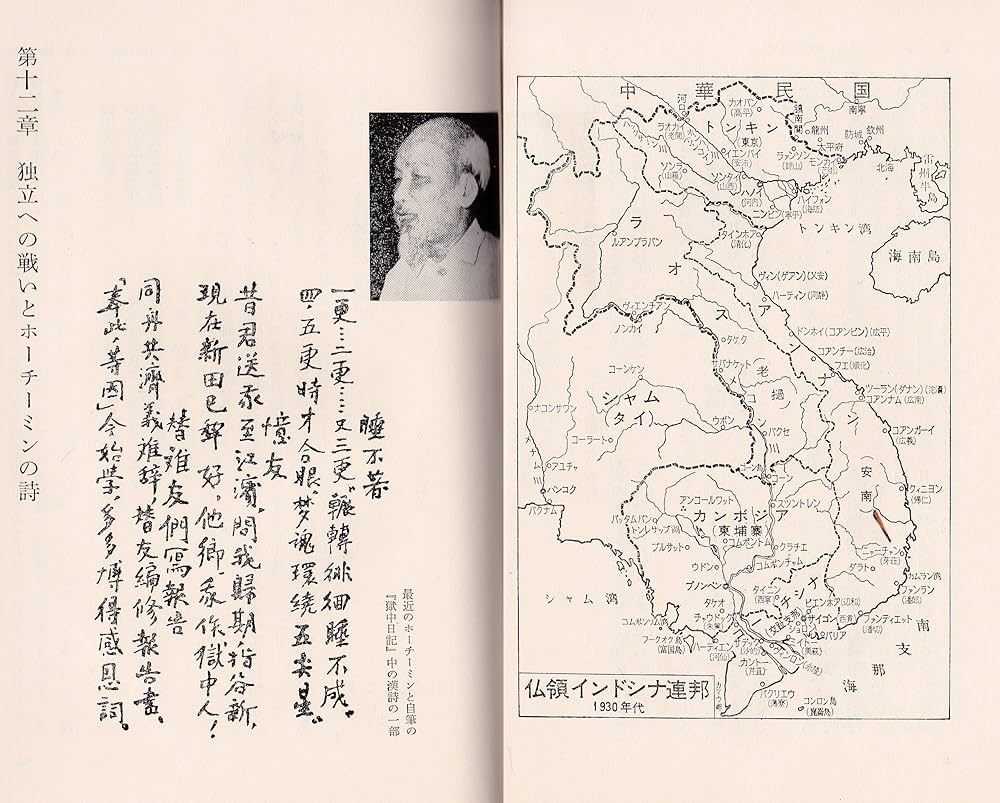 中華民国
トンキン
(東京)
河口
カオバン
(高平)
ラオカイ
(老開)
鎮南関
龍州
太平府
南寧
欽州
防城
北海
雷州半島
イエンバイ
(安沛)
ランソン
(諒山)
モンカイ
ソンラ
(山蘿)
ソンタイ
(山西)
ハノイ
(河内)
ハイフォン
(海防)
ニンビン(寧平)
トンキン湾
海南島
タインホア
(清化)
ラオス
ルアンプラバン
ヴィン(ゲアン)(乂安)
ハーティン(河静)
ヴィエンチャン
ノンカイ
ドンホイ(コアンビン)(広平)
タケク
コアンチー(広治)
フエ(順化)
サバナケット
(老撾)
アンナン
コーンケン
ツーラン(ダナン)(沱㶞)
コアンナム(広南)
シャム
(タイ)
ナコンサワン
メナム
ウボン
パクセ
コアンガーイ
(広義)
コーラート
メコン
アユチャ
コーン島
コーン
安南
バンコク
パクナム
クィニヨン
(帰仁)
アンコールワット
スツントレン
カンボジア
(東埔寨)
バッタムバン
トンレサップ湖
プルサット
コムポントム
クラチエ
ニャーチャン
(芽荘)
ウドン
コムポンチャム
ダラト
カムラン湾
プノンペン
タイニン
(西寧)
ファンラン
(潘郎)
シャム湾
タケオ
ビエンホア(辺和)
サイゴン(西貢)
ファンティエット
(潘切)
コムポンソム
チャウドック
(朱篤)
バリア
フークオク島
(富国島)
ハーティエン
(河仙)
カントー
(芹苴)
バクリエウ
(薄寮)
コンロン島
(崑崙島)
南支那海
仏領インドシナ連邦
1930年代
最近のホーチーミンと自筆の
『獄中日記』中の漢詩の一部
睡不著
一更…二更…又三更，輾轉徘徊睡不成，
四、五更時才合眼，梦魂環繞五尖星。
憶友
昔君送我至江濱，問我歸期指谷新，
現在新田已犂好，他鄉我作獄中人！
替難友們寫報告
同舟共濟義难辞，替友編修報告書，
「奉此，等因」今始學，多多博得感恩詞。
第十二章　独立への戦いとホーチーミンの詩